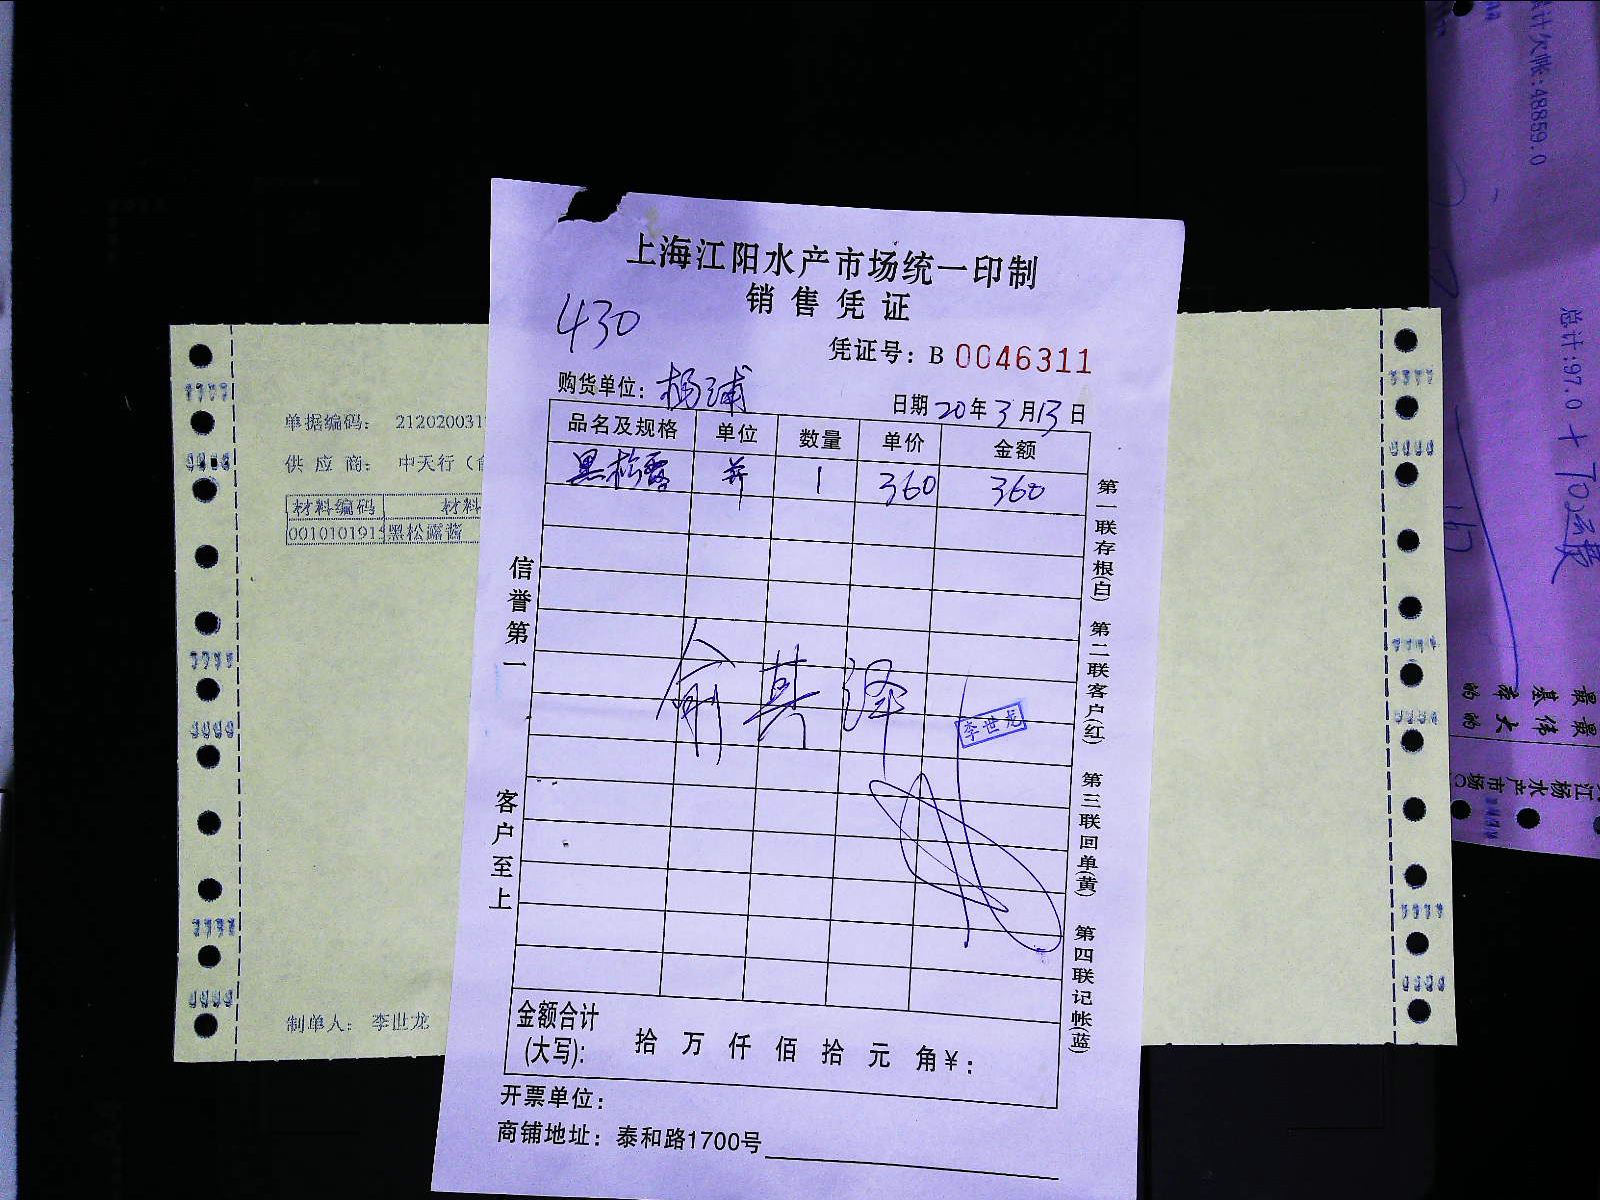 上海江阳水产市场统一印制
销售凭证
430
凭证号：B 0046311
购货单位：杨浦
日期 20 年 3 月 13 日
品名及规格 单位 数量 单价 金额
黑松露 并 1 360 360
信誉第一 客户至上
第一联存根(白) 第二联客户(红) 第三联回单(黄) 第四联记帐(蓝)
俞其泽
李世龙
金额合计(大写)： 拾 万 仟 佰 拾 元 角 ¥：
开票单位：
商铺地址：泰和路1700号
单据编码： 212020031
供 应 商： 中天行（俞
材料编码 材料
0010101915 黑松露酱
制单人： 李世龙
总计欠帐:48859.0
总计:97.0 + 70运费
最基本的
最伟大的
江杨水产市场C